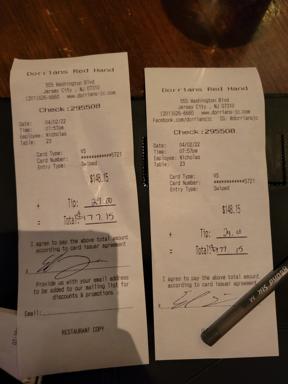 Dorrians Red Hand
555 Washington Blvd
Jersey City , NJ 07310
(201)626-6660 www.dorrians-jc.com
Check:295508
Date: 04/02/22
Time: 07:57pm
Employee: Nicholas
Table: 23
Card Type: VS
Card Number: ************5721
Entry Type: Swiped
$148.15
+ Tip: 29.00
= Total: $177.15
I agree to pay the above total amount
according to card issuer agreement
x
Provide us with your email address
to be added to our mailing list for
discounts & promotions
Email:
RESTAURANT COPY
Dorrians Red Hand
555 Washington Blvd
Jersey City , NJ 07310
(201)626-6660 www.dorrians-jc.com
Facebook.com/dorriansjc IG: @dorriansjc
Check:295508
Date: 04/02/22
Time: 07:57pm
Employee: Nicholas
Table: 23
Card Type: VS
Card Number: ************5721
Entry Type: Swiped
$148.15
+ Tip: 29.00
= Total: $177.15
I agree to pay the above total amount
according to card issuer agreement
x